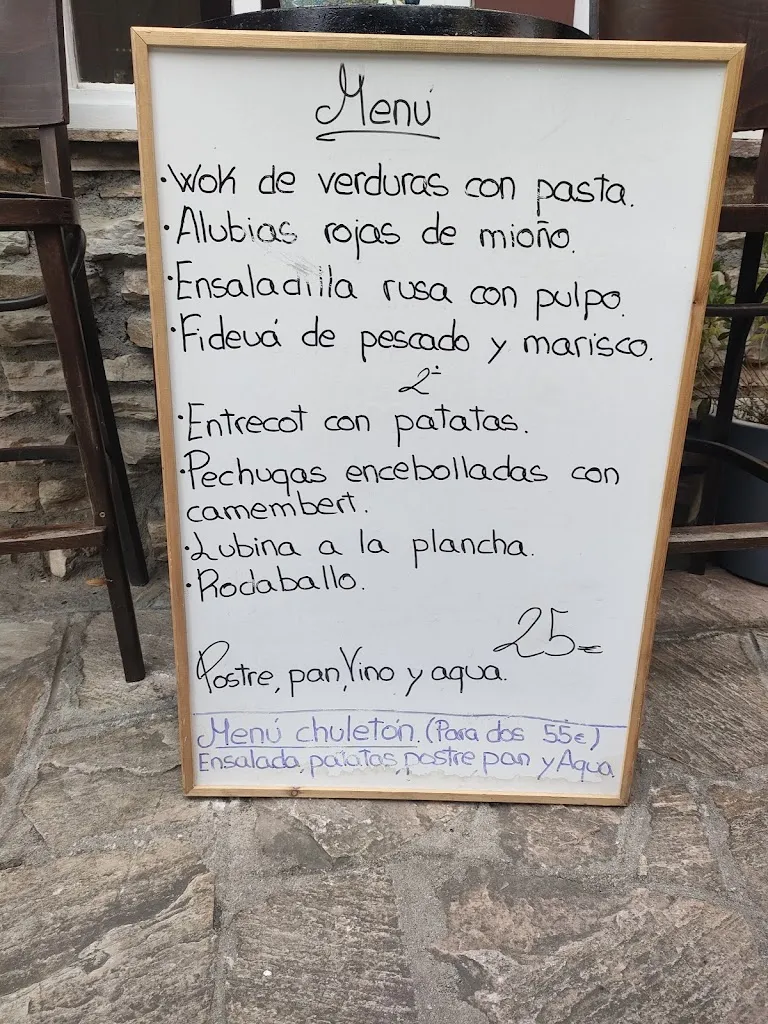 Menú
·Wok de verduras con pasta.
·Alubias rojas de mioño.
·Ensaladilla rusa con pulpo.
·Fideuá de pescado y marisco.
2º
·Entrecot con patatas.
·Pechugas encebolladas con
camembert.
·Lubina a la plancha.
·Rodaballo.
25€
Postre, pan, Vino y agua.
Menú chuletón. (Para dos 55€)
Ensalada, patatas, postre pan y Agua